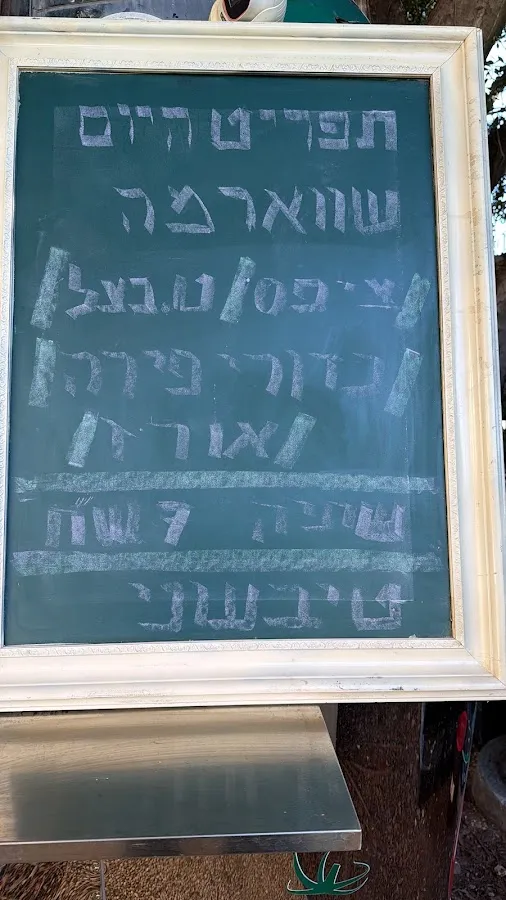 תפריט היום
שווארמה
/צ׳יפס/ט.בצל/
/כדורי פירה/
/אורז/
שתיה 7 שח
טיב שני